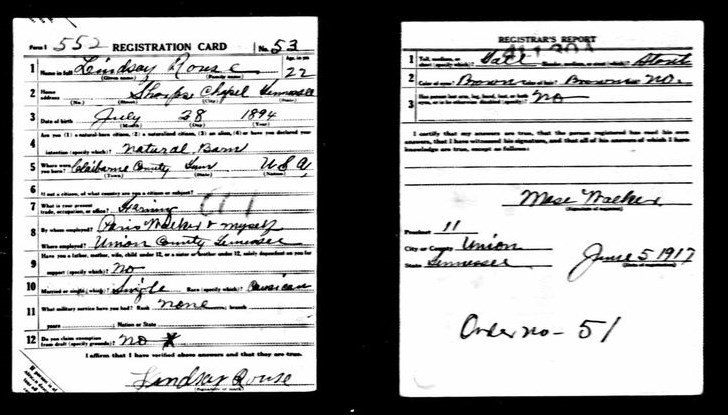 Form 1 552 REGISTRATION CARD No. 53
1 Name in full Lindsay Rouse Age, in yrs. 22
(Given name) (Family name)
2 Home address Sharps Chapel Tennessee
(No.) (Street) (City) (State)
3 Date of birth July 28 1894
(Month) (Day) (Year)
4 Are you (1) a natural-born citizen, (2) a naturalized citizen, (3) an alien, (4) or have you declared your
intention (specify which)? Natural Born
5 Where were you born? Claiborne County Tenn U S A
(Town) (State) (Nation)
6 If not a citizen, of what country are you a citizen or subject?
7 What is your present trade, occupation, or office? Farming
8 By whom employed? Paris Walker & myself
Where employed? Union County Tennessee
9 Have you a father, mother, wife, child under 12, or a sister or brother under 12, solely dependent on you for
support (specify which)? No
10 Married or single (which)? Single Race (specify which)? Caucasian
11 What military service have you had? Rank none ; branch
years ; Nation or State
12 Do you claim exemption from draft (specify grounds)? No
I affirm that I have verified above answers and that they are true.
Lindsay Rouse
REGISTRAR'S REPORT
1 Tall, medium, or short (specify which)? Tall Slender, medium, or stout (which)? Stout
2 Color of eyes? Brown Color of hair? Brown No.
3 Has person lost arm, leg, hand, foot, or both eyes, or is he otherwise disabled (specify)? No
I certify that my answers are true, that the person registered has read his own
answers, that I have witnessed his signature, and that all of his answers of which I have
knowledge are true, except as follows:
Mase Walker
(Signature of registrar)
Precinct 11
City or County Union
State Tennessee June 5 1917
(Date of registration)
Order no - 51